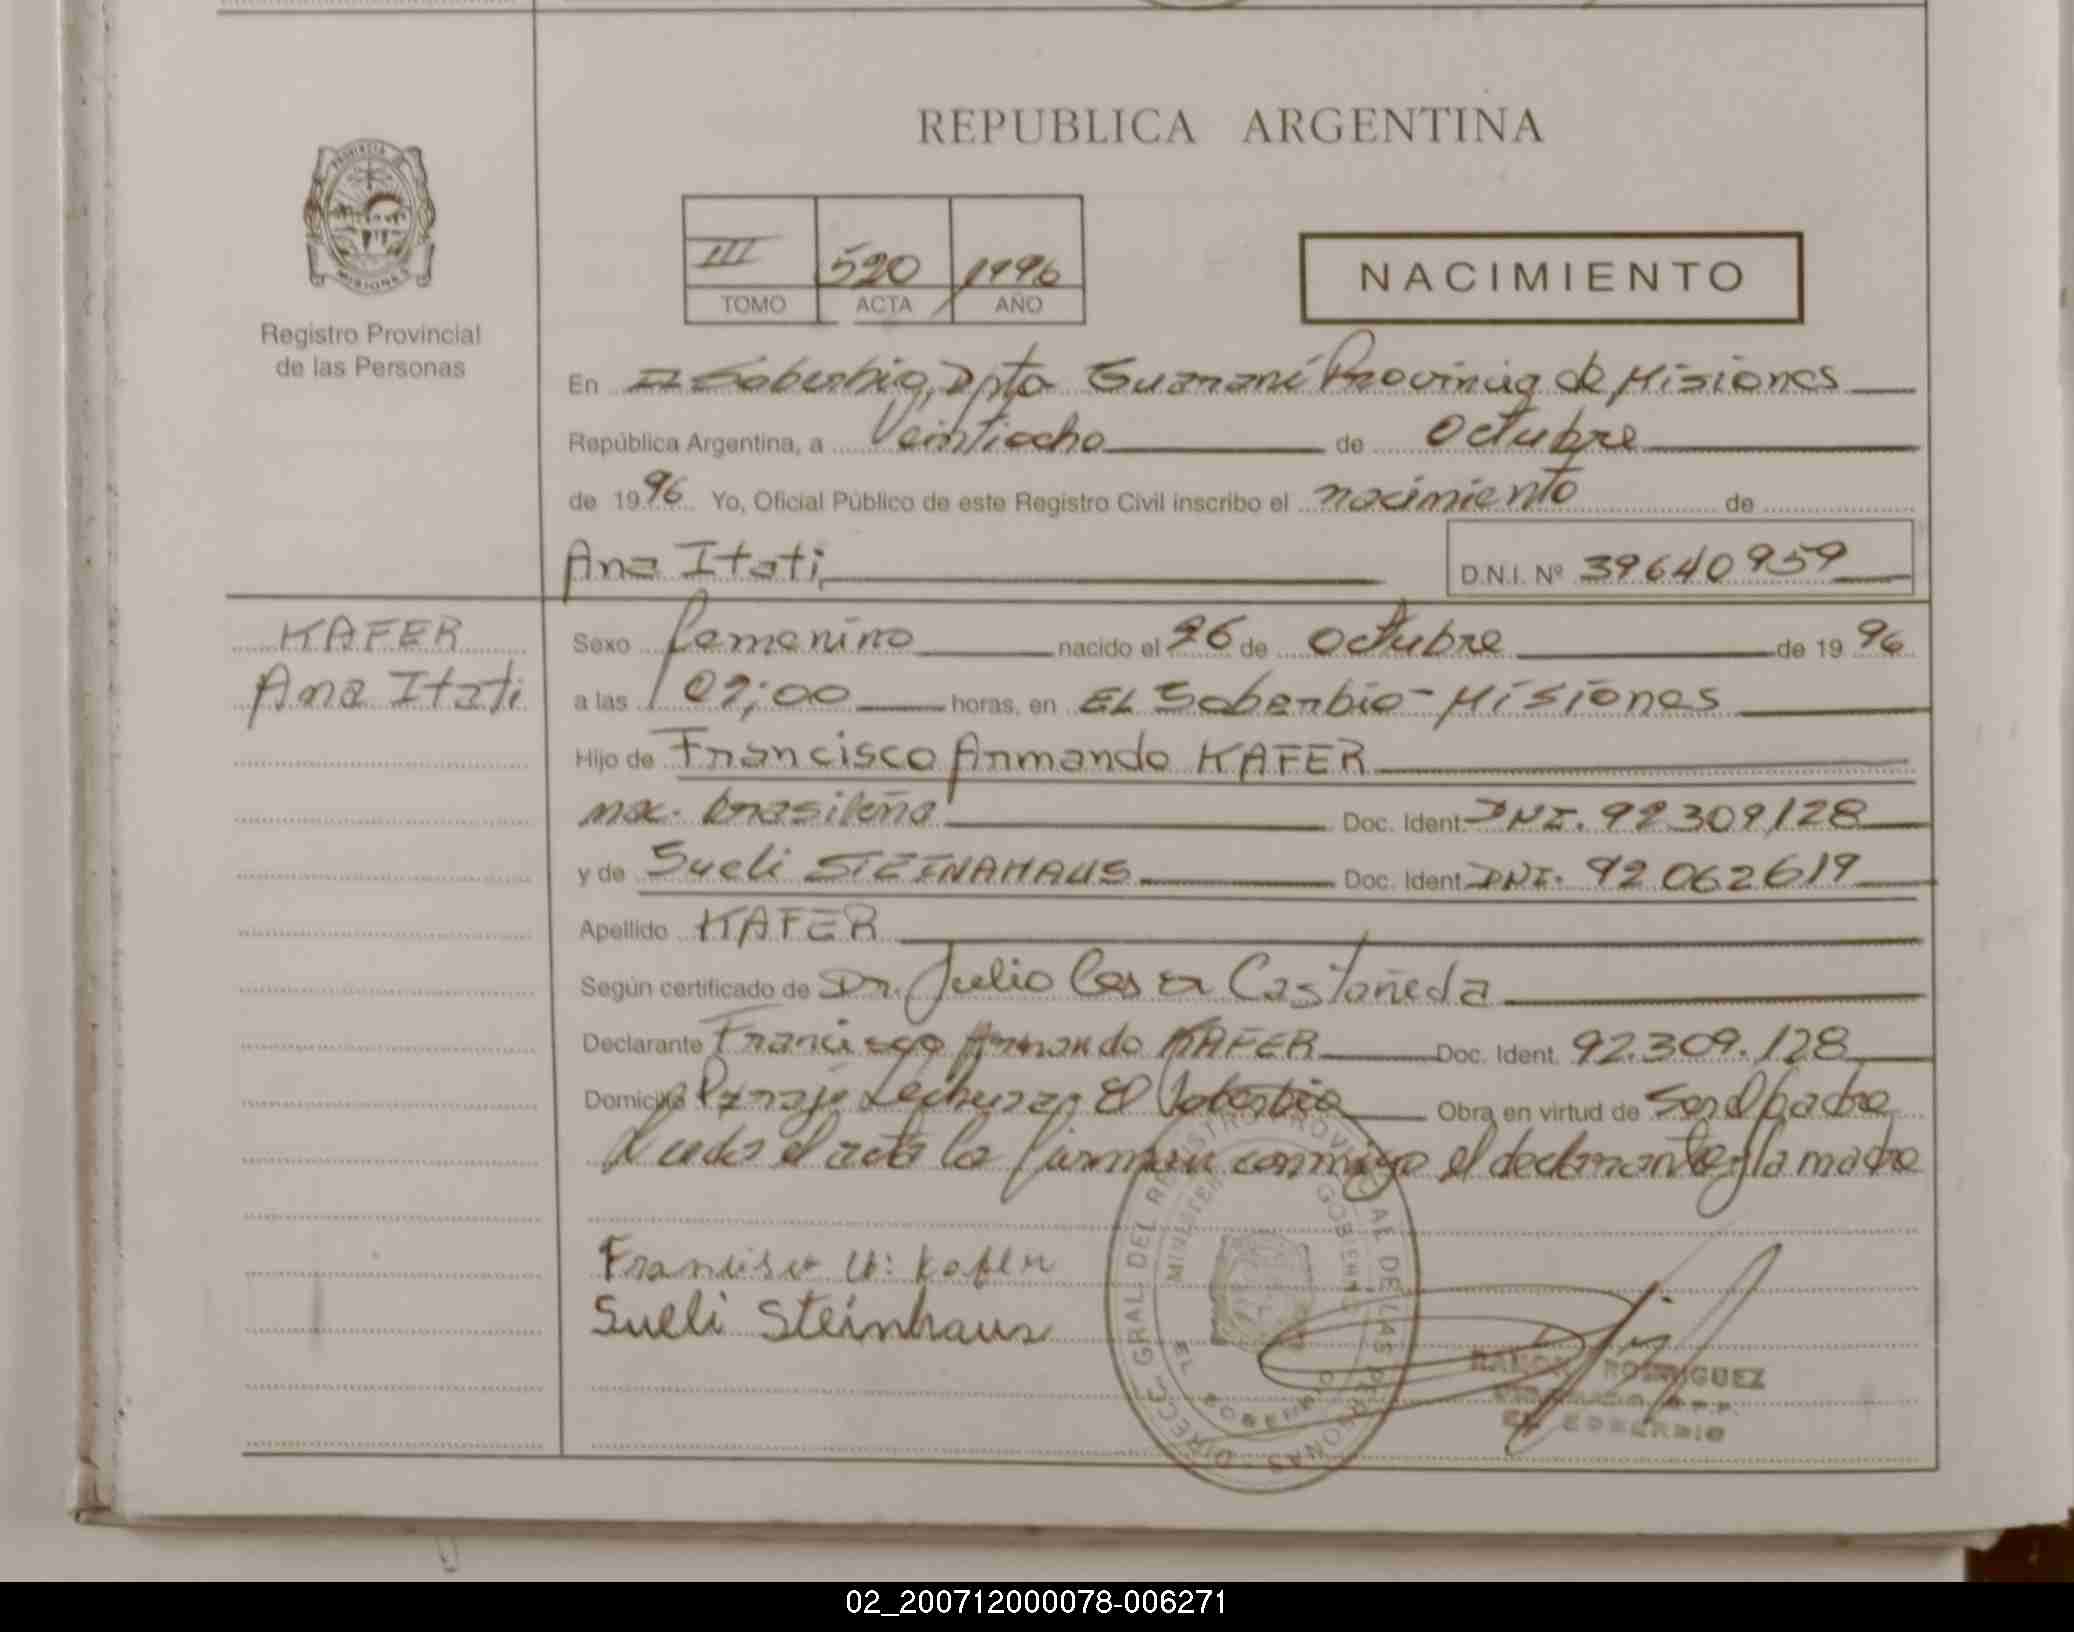 REPUBLICA ARGENTINA
PROVINCIA DE MISIONES
Registro Provincial
de las Personas
III 520 1996
TOMO ACTA AÑO
NACIMIENTO
En El Soberbio, Dpto Guaraní Provincia de Misiones
República Argentina, a Veintiocho de Octubre
de 1996 Yo, Oficial Público de este Registro Civil inscribo el nacimiento de
Ana Itati D.N.I. Nº 39640959
KAFER
Ana Itati
Sexo femenino nacido el 26 de Octubre de 1996
a las 07:00 horas, en EL Soberbio - Misiones
Hijo de Francisco Armando KAFER
nac. brasileña Doc. Ident. DNI. 92309128
y de Sueli STEINAHAUS Doc. Ident. DNI. 92062619
Apellido KAFER
Según certificado de Dr. Julio Cesar Castañeda
Declarante Francisco Armando KAFER Doc. Ident. 92.309.128
Domicilio Paraje El Soberbio Obra en virtud de Ser el padre
Leida el acta la firman conmigo el declarante y la madre
Francisco A. Kafer
Sueli Steinhaus
DIRECC. GRAL. DEL REGISTRO PROVINCIAL DE LAS PERSONAS
EL SOBERBIO
RAMON RODRIGUEZ
EL SOBERBIO
02_200712000078-006271